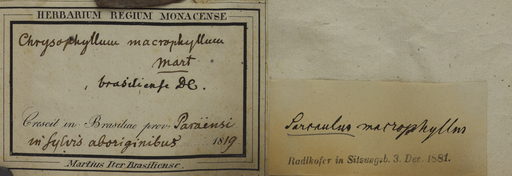 HERBARIUM REGIUM MONACENSE
Chrysophyllum macrophyllum
Mart
brasiliense DC.
Crescit in Brasiliae prov. Paraënsi
in sylvis aboriginibus 1819
Martius Iter Brasiliense.
Sarcaulus macrophyllus
Radlkofer in Sitzungsb. 3. Dec. 1881.